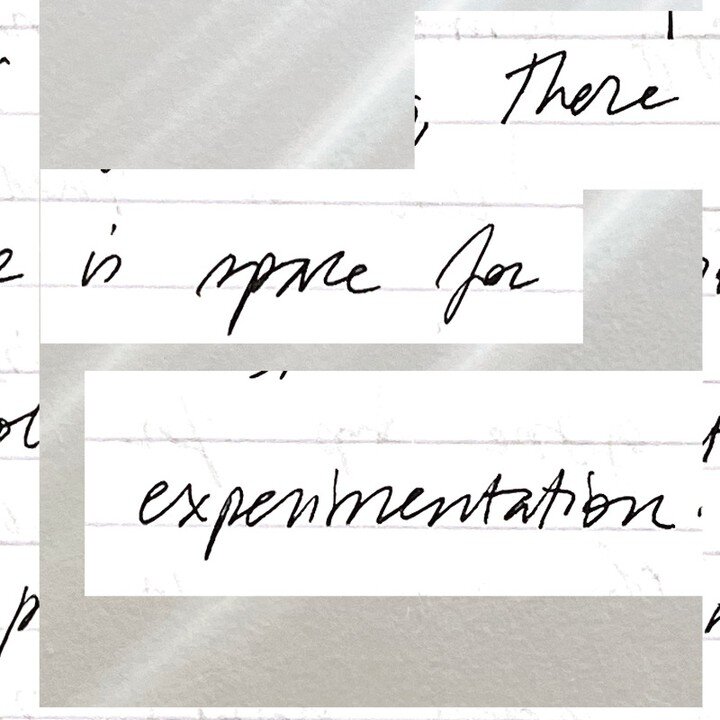 There
is space for
experimentation.